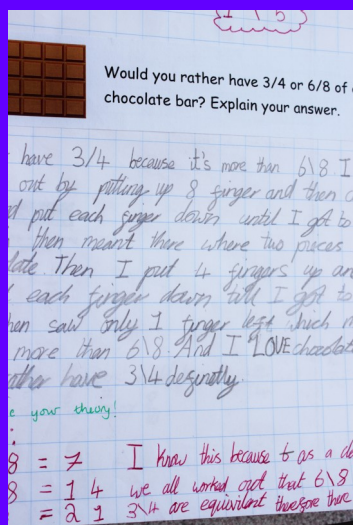 Would you rather have 3/4 or 6/8 of
chocolate bar? Explain your answer.
have 3/4 because it's more than 6\8. I
out by putting up 8 finger and then
put each finger down until I got to
then meant there where two pieces
Then I put 4 fingers up an
each finger down till I got to
saw only 1 finger left which
more than 6\8. And I LOVE chocolat
rather have 3\4 definotly.
your theory!
8 = 7 I know this because 6 as a
8 = 1 4 we all worked out that 6\8
= 2 1 3\4 are equivilent therefore there